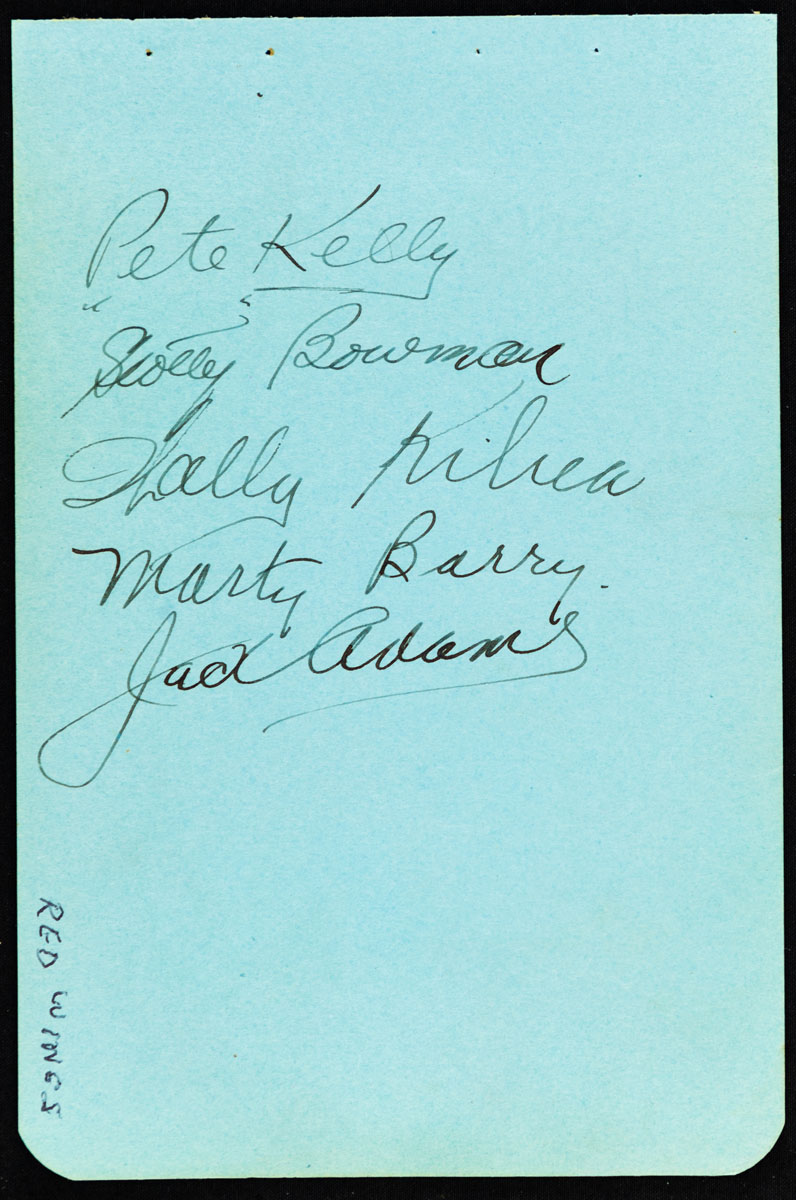 Pete Kelly
"Scotty" Bowman
Wally Kilrea
Marty Barry.
Jack Adams
RED WINGS